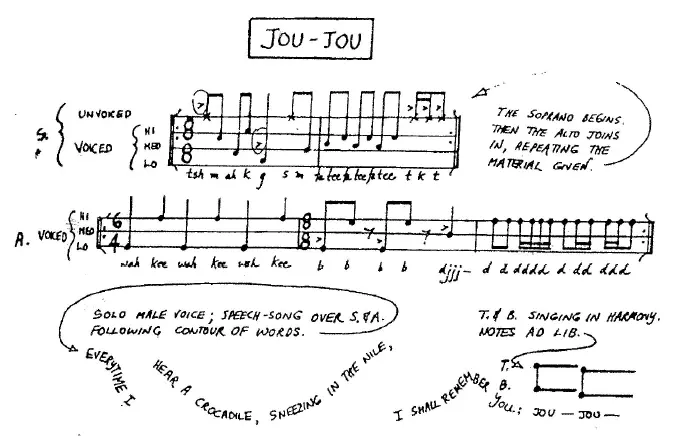 JOU-JOU
UNVOICED
S. VOICED
HI
MED
LO
8
8
tsh m ah k g s m tee tee tee t k t
THE SOPRANO BEGINS.
THEN THE ALTO JOINS
IN, REPEATING THE
MATERIAL GIVEN.
A. VOICED
HI
MED
LO
6
4
8
8
wah kee wah kee wah kee b b b b djjj- d d dddd d dd ddd
jjj
SOLO MALE VOICE; SPEECH-SONG OVER S.&A.
FOLLOWING CONTOUR OF WORDS.
EVERYTIME I
HEAR A CROCADILE, SNEEZING IN THE NILE,
I SHALL REMEMBER
YOU; JOU — JOU —
T.& B. SINGING IN HARMONY.
NOTES AD LIB.
T.
B.